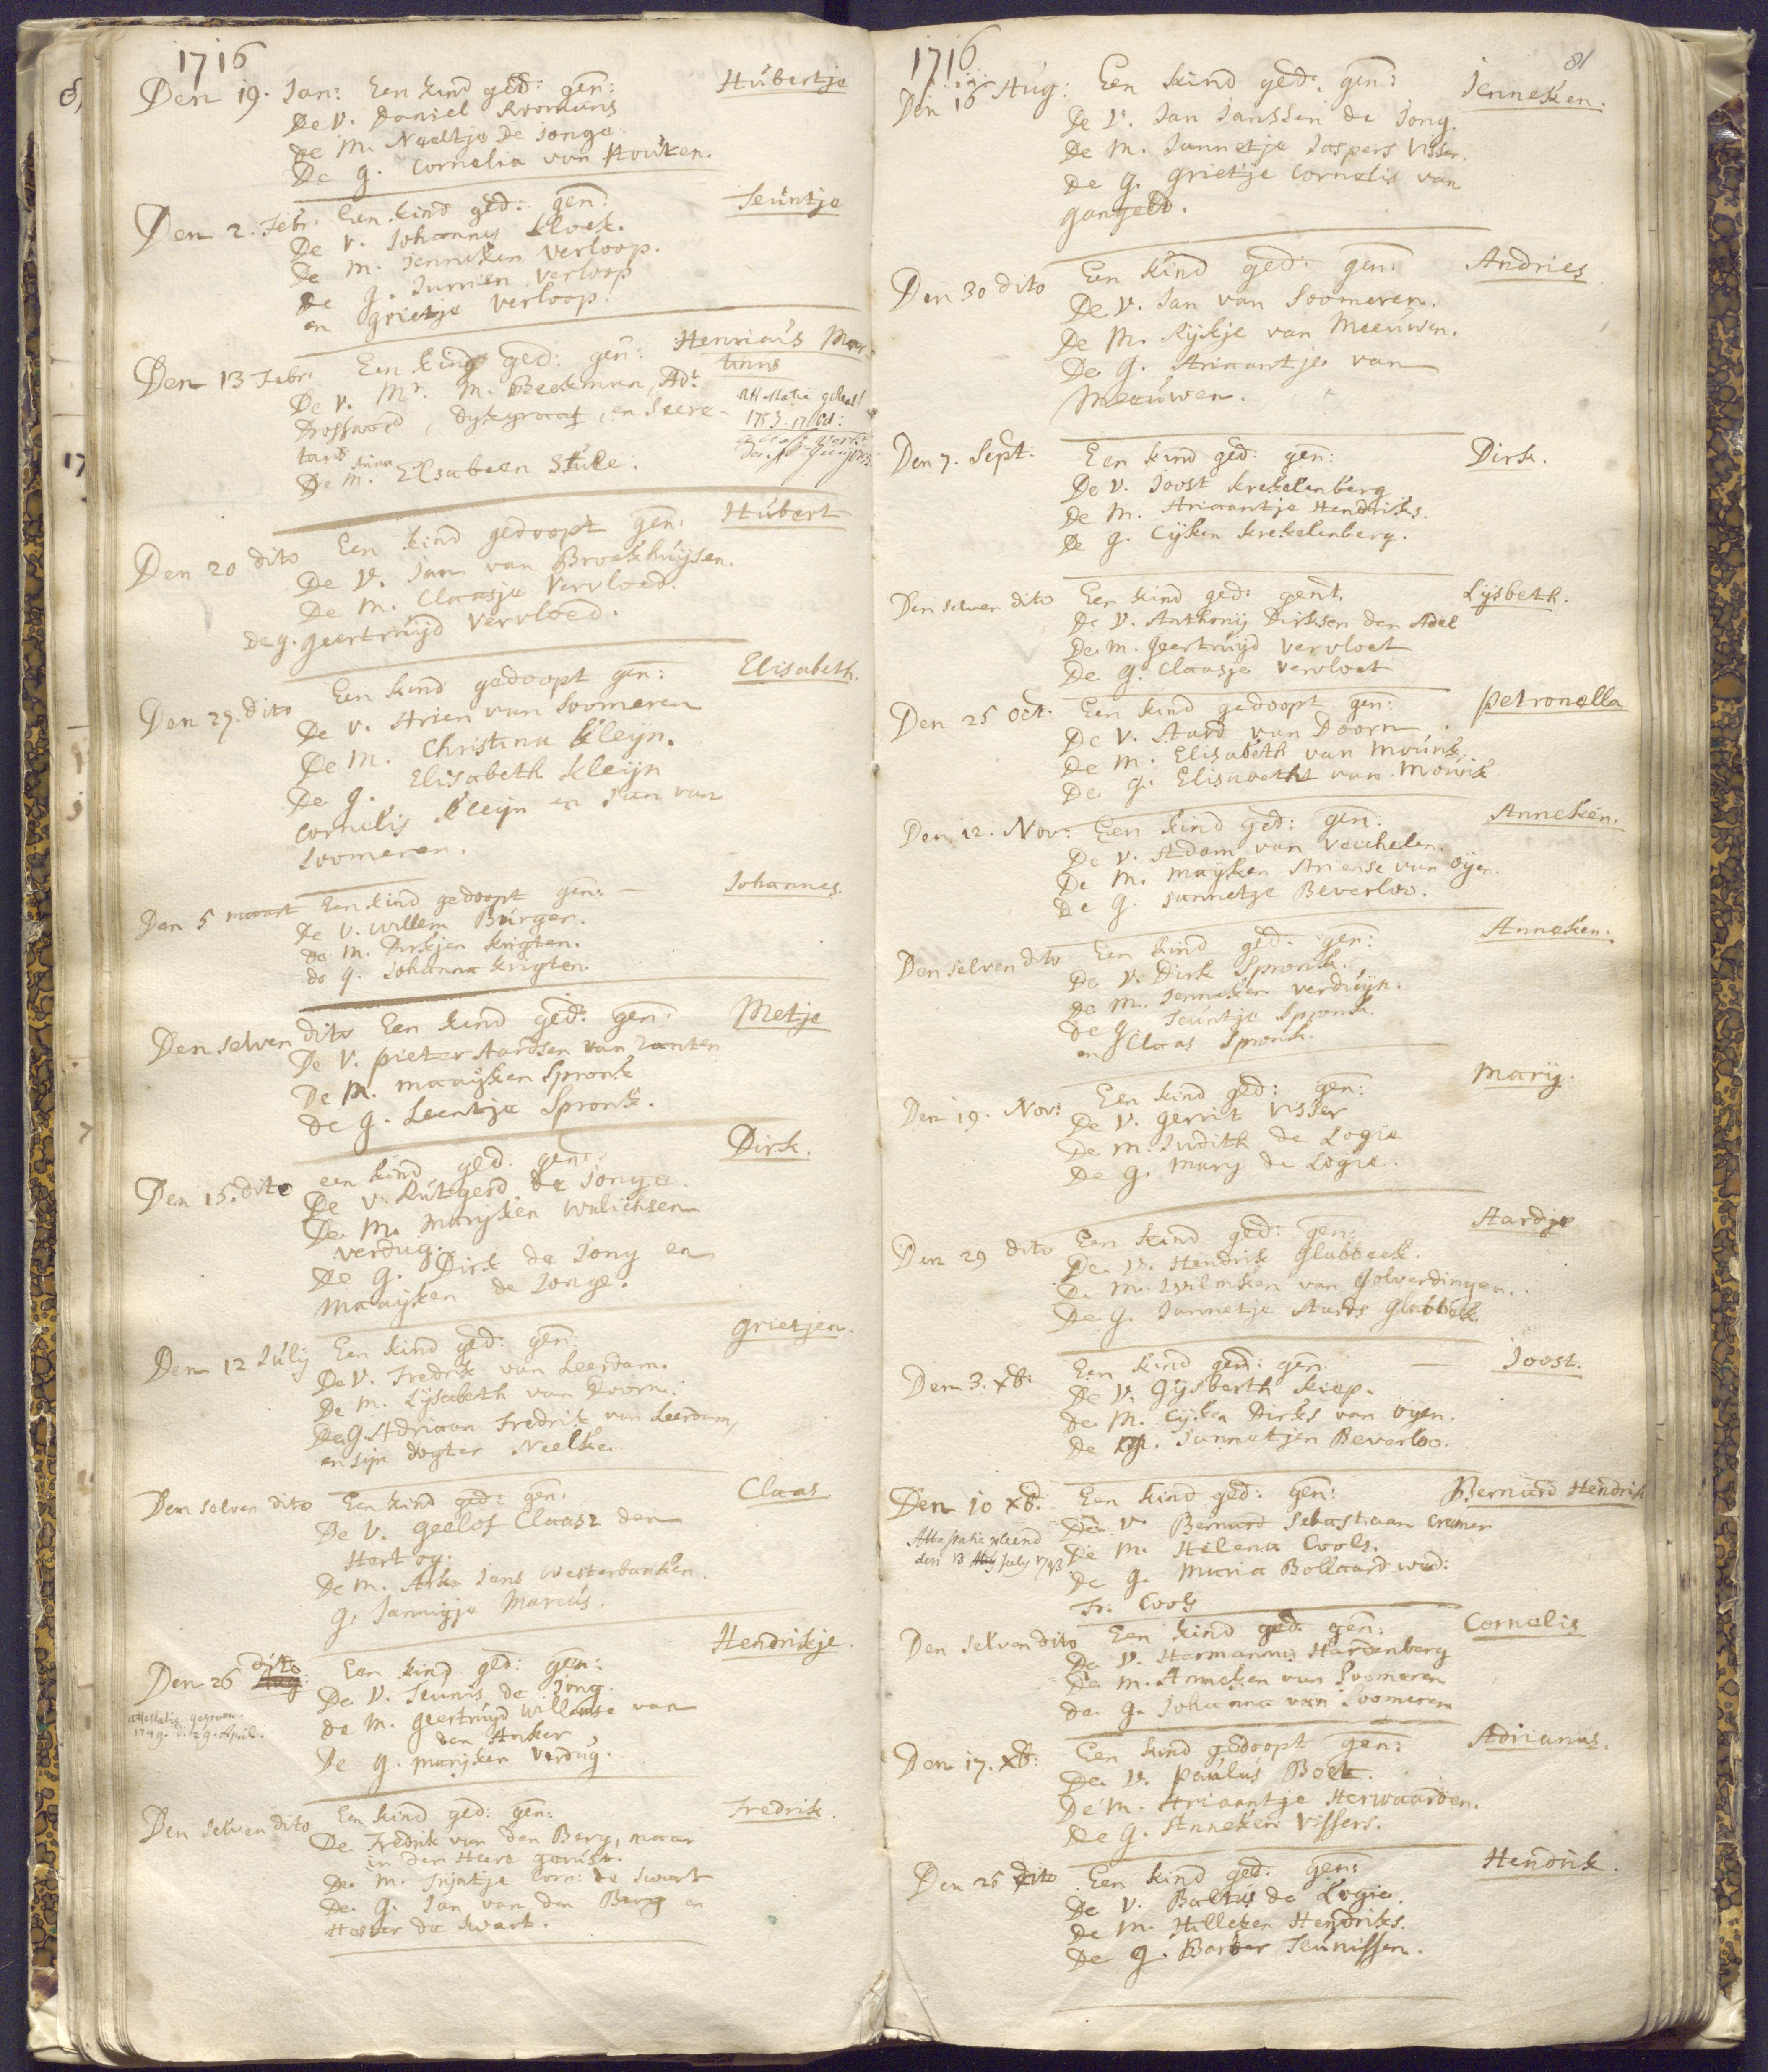 1716
Den 19. Jan: Een kind ged: gen: Hubertje
De V. Daniel Roomans
De M. Neeltje de Jonge
De g. Cornelia van Houten.
Den 2. Febr. Een kind ged: gen: Teuntje
De V. Johannes Kloek.
De M. Jenneken Verloop.
De g. Jurrien Verloop
en grietje Verloop.
Den 13 Febr. Een kind ged: gen: Henricus Mar
tinus
De V. Mr. M. Beekman, Adt
Drossaard, Dykgraaf, en Secre-
tars
De M. Anna Elsabeen Stule.
1753.
Den 20 dito Een kind gedoopt gen: Hubert
De V. Jan van Broekhuijsen.
De M. Claasje Vervloed.
De g. geertruijd Vervloed.
Den 29. dito Een kind gedoopt gen: Elisabeth.
De V. Arien van Soomeren
De M. Christina Kleijn.
De g. Elisabeth Kleijn
Cornelis Kleijn en Jan van
Soomeren.
Den 5 maart Een kind gedoopt gen: Johannes.
De V. Willem Burger.
de M. Dirkjen Krigten.
de g. Johanna Krigten.
Den selven dito Een kind ged: gen: Metje
De V. pieter Aardsen van Zanten
De M. maaijken Spronk
de g. Leentje Spronk.
Den 15. dito een kind ged. gen: Dirk.
De V. Rutgerd de Jonge.
De M. Marijken Walichsen
verdug.
De g. Dirk de Jong en
Maaijken de Jonge.
Den 12 Julij Een kind ged: gen: grietjen.
De V. Fredrik van Leerdam.
De M. Lijsabeth van Doorn.
De g. Adriaan Fredrik van Leerdam,
en sijn dogter Neelke.
Den selven dito Een kind ged: gen: Claas
De V. Geelof Claasz den
Hartog.
De M. Jans Westerbaaken.
g. Jannigje Marcus.
Den 26 dito Een kind ged: gen: Hendrikje.
De V. Teunis de Jong.
de M. geertruijd Willemse van
den Anker
De g. marijken Verdug.
attestatie gegeven.
d. 29. April.
Den selven dito Een kind ged: gen: Fredrik.
De Fredrik van den Berg, maar
in den Heere gerust.
De M. Sijatje Corn: de Swart
De g. Jan van den Berg en
Hester de Swart.
1716 81
Den 16 Aug: Een kind ged: gen: Jenneken.
De V. Jan Janssen de Jong.
De M. Jannetje Jaspers Visser.
De g. grietje Cornelis van
gangeld.
Den 30 dito Een kind ged: gen: Andries
De V. Jan van Soomeren.
De M. Rijkje van Meeuwen.
De g. Ariaantje van
Meeuwen.
Den 7. Sept: Een kind ged: gen: Dirk.
De V. Joost Krekelenberg
De M. Ariaantje Hendriks.
De g. Cijken Krekelenberg.
Den selven dito Een kind ged: gent. Lijsbeth.
De V. Anthonij Dirksen den Adel
De M. geertruijd Vervloet
De g. Claasje Vervloet
Den 25 Oct: Een kind gedoopt gen: petronella
De V. Aard van Doorn
De M. Elisabeth van Mourik.
De g. Elisabetht van Mourik
Den 12. Nov: Een kind ged: gen: Anneken.
De V. Adam van Vechelen.
De M. maijken Ariense van Oijen.
De g. Jannetje Beverloo.
Den selven dito Een kind ged: gen: Anneken.
De V. Dirk Spronk.
De M. Jenneken Verduijn.
De g. Teuntje Spronk.
en Claas Spronk.
Den 19. Nov: Een kind ged: gen: Marij.
De V. gerrit Visser
De M. Judith de Logie
De g. Mary de Logie.
Den 29 dito Een kind ged: gen: Aardje
De V. Hendrik Glabbeek.
De M. Wilmken van Golverdingen.
De g. Jannetje Aards Glabbeek.
Den 3. xb: Een kind ged: gen. Joost.
De V. Gijsberth Kiep.
de M. Cijken Dirks van Oijen.
De g. Jannetjen Beverloo.
Den 10 xb: Een kind ged: gen: Bernard Hendrik
De V. Bernard Sebastiaan Cremer
Attestatie verleend
den 13 July 1743
De M. Helena Cools.
De g. Maria Bollaard wed:
Fr: Cools
Den selven dito Een kind ged: gen: Cornelis
De V. Hermannus Hardenberg
De M. Anneken van Soomeren
de g. Johanna van Soomeren
Den 17. xb: Een kind gedoopt gen: Adrianus.
De V. paulus Bock.
De M. Ariaantje Herwaarden.
De g. Anneken Vissers.
Den 26 dito Een kind ged: gen: Hendrik.
De V. Baltus de Logie.
De M. Hilleken Hendriks.
De g. Barber Teunissen.